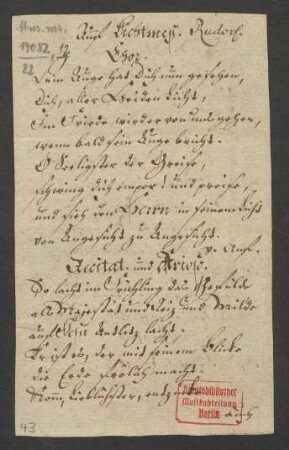 Mus. ms.
19082, 12
22
Auf Lichtmeß. Rudorf.
Chor.
Dein Auge hat Dich nun gesehen,
Dich, aller Heiden Licht,
In Friede wird er von uns gehen,
wenn bald sein Auge bricht.
O seeligster der Greise,
schwing dich empor und preise,
und sieh den Herrn in seinem Licht
von Angesicht zu Angesicht.
v. Anf.
Recitat. und Arioso.
So lacht im Frühling das Gefilde
als Majestät und und Milde
auf Antlitz lacht.
Er ist es, der mit seinem Blicke
die Erde frölich macht.
Komm, Lieblichster,
auch
Staatsbibliothek
Musikabteilung
Berlin
43